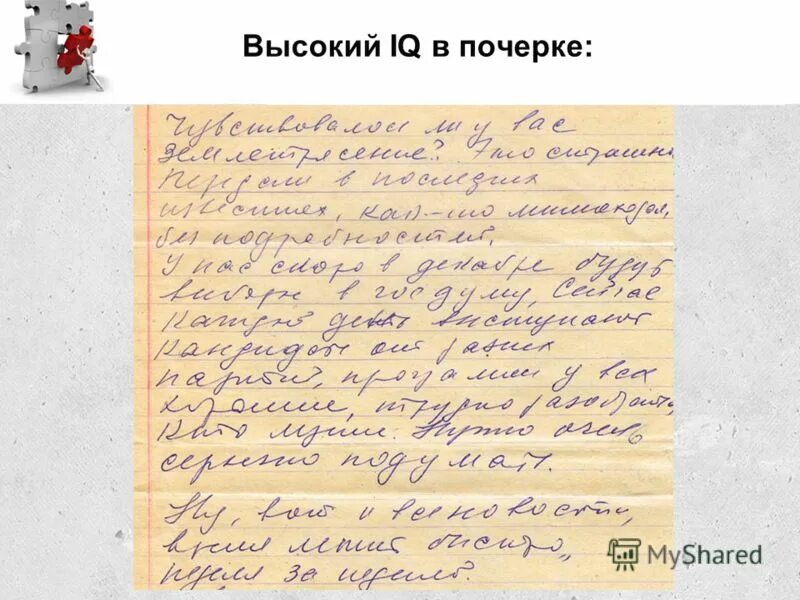 Высокий IQ в почерке:
Чувствовалось ли у вас
землетрясение? Это страшно
Передали в последних
известиях, как-то мимоходом,
без подробностей.
У нас скоро в декабре будут
выборы в госдуму, Сейчас
каждый день выступают
кандидаты от разных
партий, программы у всех
хорошие, трудно разобрать,
кто лучше. Нужно очень
серьёзно подумать.
Ну, вот и все новости,
время летит быстро,
неделя за неделей.
MyShared